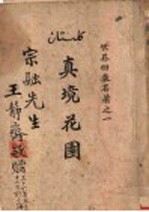 گلستان
世界回教名著之一
真境花園
宗融先生
王靜齋敬贈